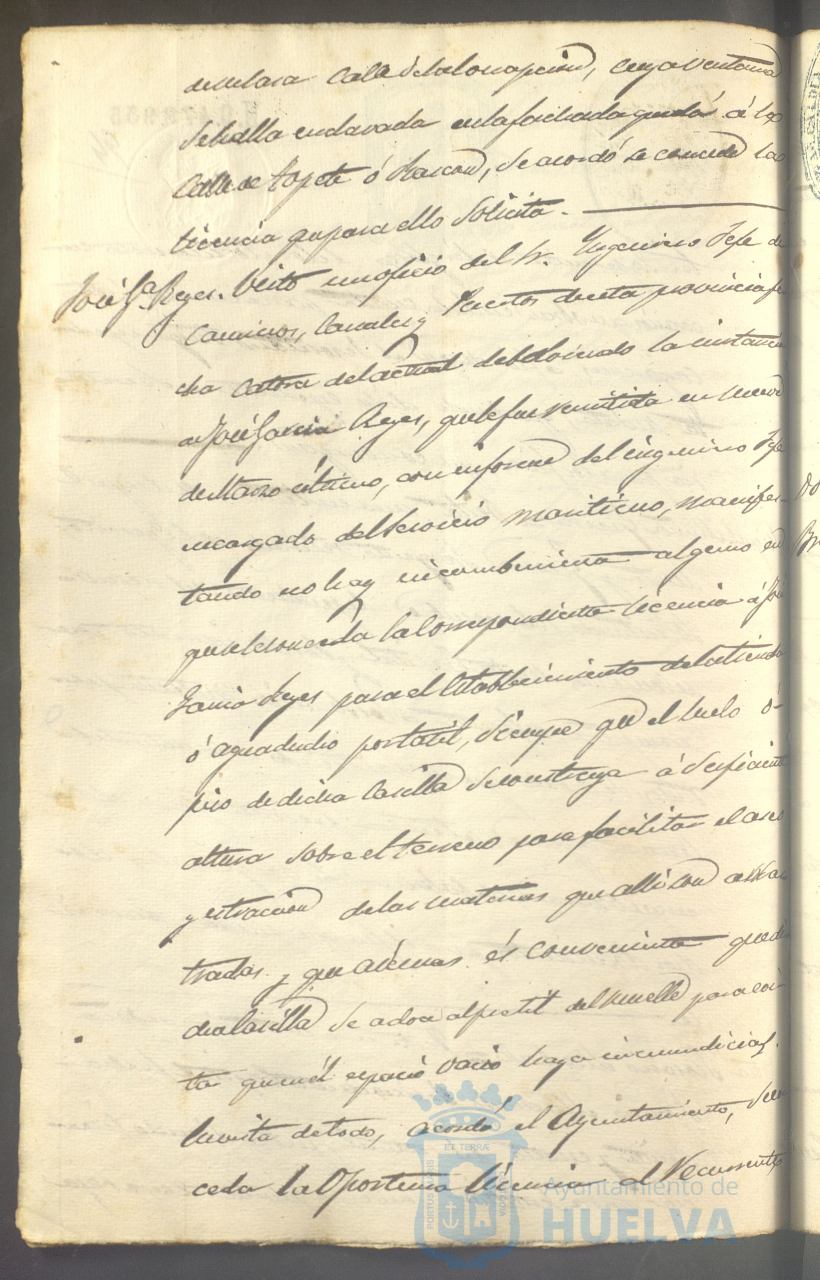 de su casa Calle de la Concepcion, cuya ventana
se halla enclavada en la fachada que da á la
Calle de Ropete ó Rascon, se acordó se conceda la
licencia que para ello Solicita.
José Ga. Reyes. Visto un oficio del Sr. Ingeniero Jefe de
Caminos, Canales y Puertos de esta provincia fe
cha Catorce del actual debolviendo la instancia
de José Garcia Reyes, que le fue remitida en nueve
de Marzo último, con informe del ingeniero Jefe
encargado del Servicio maritimo, manifes-
tando no hay incombeniente alguno en
que se le conceda la Correspondiente licencia á José
Garcia Reyes para el Establecimiento de la tienda
ó aguaducho portatil, siempre que el suelo ó
piso de dicha Casilla se construya á suficiente
altura sobre el terreno para facilitar el aseo
y estraccion de las materias que alli son arras
tradas y que ademas és conveniente que di
cha Casilla se adose al pretil del muelle para evi
ta que en él espacio vacio haya inmundicias.
En vista de todo, acordó el Ayuntamiento, se con
ceda la Oportuna licencia al Recurrente
PORTUS MARIS
ET TERRÆ
CUSTODIA
Ayuntamiento de
HUELVA